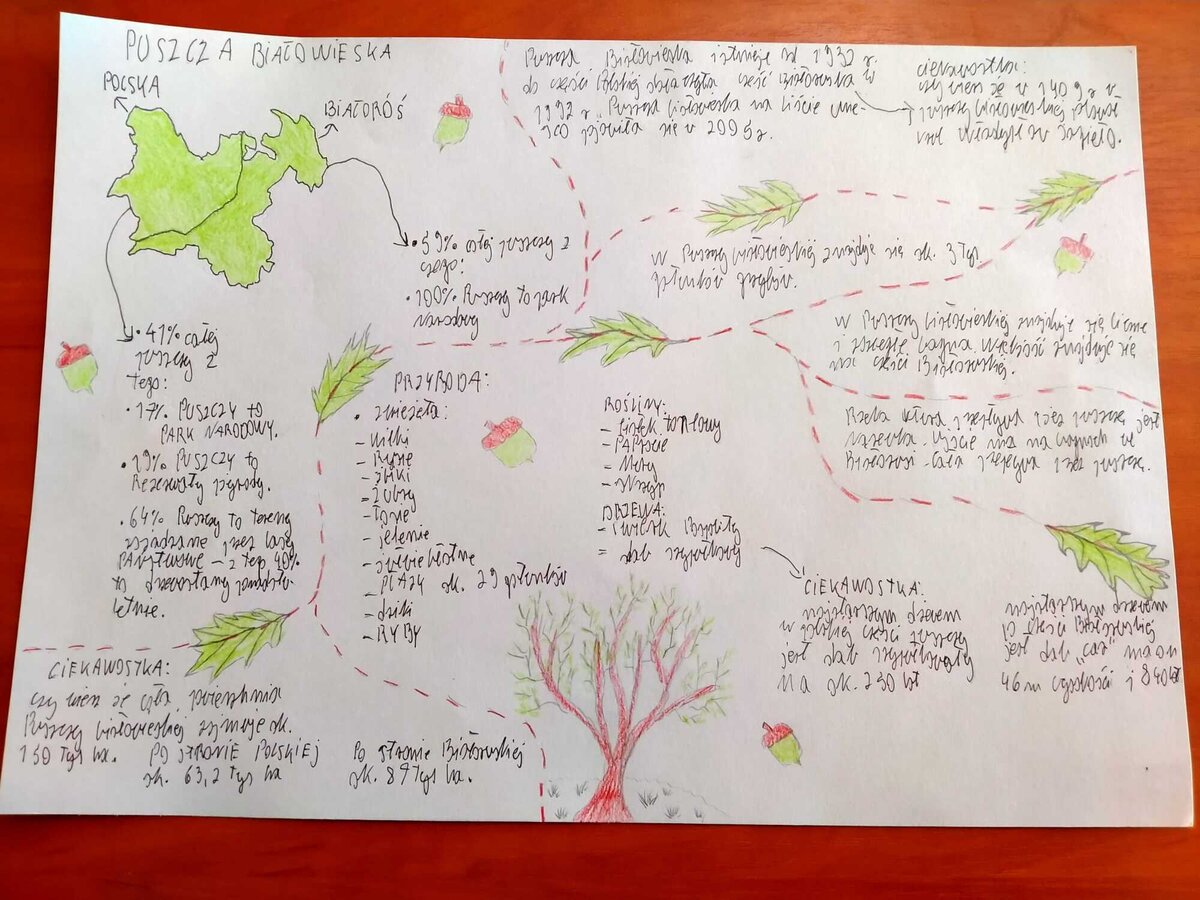 PUSZCZA BIAŁOWIESKA
POLSKA
BIAŁORÓŚ
Puszcza Białowieska istnieje od 1932 r.
do części Polskiej dołączyła część białoruska w
1992 r. Puszcza białowieska na liście une-
sco pojawiła się w 2005 r.
CIEKAWOSTKA:
czy wiesz że w 1409 r w
puszczy białowieskiej polował
król Władysław Jagiełło.
• 59% całej puszczy z
czego:
• 100% Puszczy to park
Narodowy
w Puszczy białowieskiej znajduje się ok. 3 tyś
gatunków grzybów.
• 41% całej
puszczy z
tego:
• 17% PUSZCZY to
PARK NARODOWY.
• 19% PUSZCZY to
Rezerwaty przyrody.
• 64% Puszczy to tereny
zarządzane przez lasy
PAŃSTWOWE – z tego 40%
to drzewostany
letnie.
w Puszczy białowieskiej znajdują się
i bagna. Większość znajduje się
na części Białoruskiej.
Rzeka która przepływa przez puszczę jest
Narewka. Ujście ma na
Białorusi. Cała przepływa przez puszczę.
PRZYRODA:
• zwierzęta:
- wilki
- Rysie
- żbiki
- żubry
- łosie
- jelenie
- PŁAZY ok. 29 gatunków
- dziki
- RYBY
ROŚLINY:
- PAPROCIE
- Mchy
- skrzyp
DRZEWA:
- świerk pospolity
- dąb szypułkowy
CIEKAWOSTKA:
najstarszym drzewem
w polskiej części puszczy
jest dąb szypułkowy
Ma ok. 230 lat
najstarszym drzewem
po części Białoruskiej
jest dąb „car" ma on
46 m wysokości i 840 lat
CIEKAWOSTKA:
czy wiesz że cała powierzchnia
Puszczy białowieskiej zajmuje ok.
150 tyś ha.
PO STRONIE POLSKIEJ
ok. 63,2 tyś ha
Po stronie Białoruskiej
ok. 87 tyś ha.